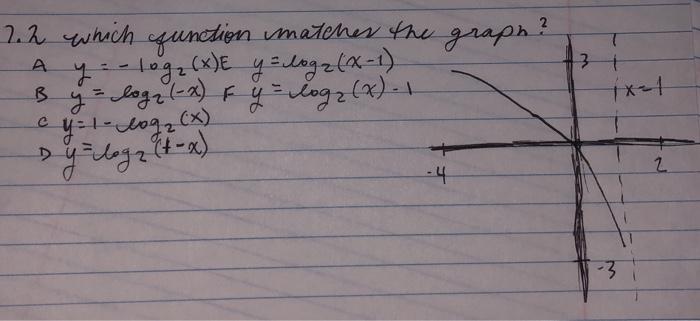 7.2 which function matches the graph?
A y = -log₂(x) E y = log₂(x-1)
B y = log₂(-x) F y = log₂(x)-1
C y = 1-log₂(x)
D y = log₂(1-x)
3
x=1
-4
2
-3